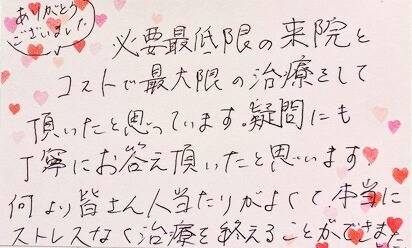 ありがとう
ございました
必要最低限の来院と
コストで最大限の治療をして
頂いたと思っています。疑問にも
丁寧にお答え頂いたと思います
何より皆さん人当たりがよくて、本当に
ストレスなく治療を終えることができまし